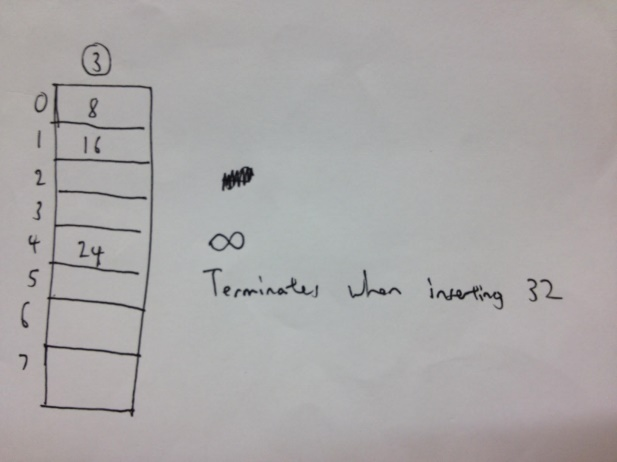 3
0 8
1 16
2
3
∞
4 24
5
Terminates when inserting 32
6
7